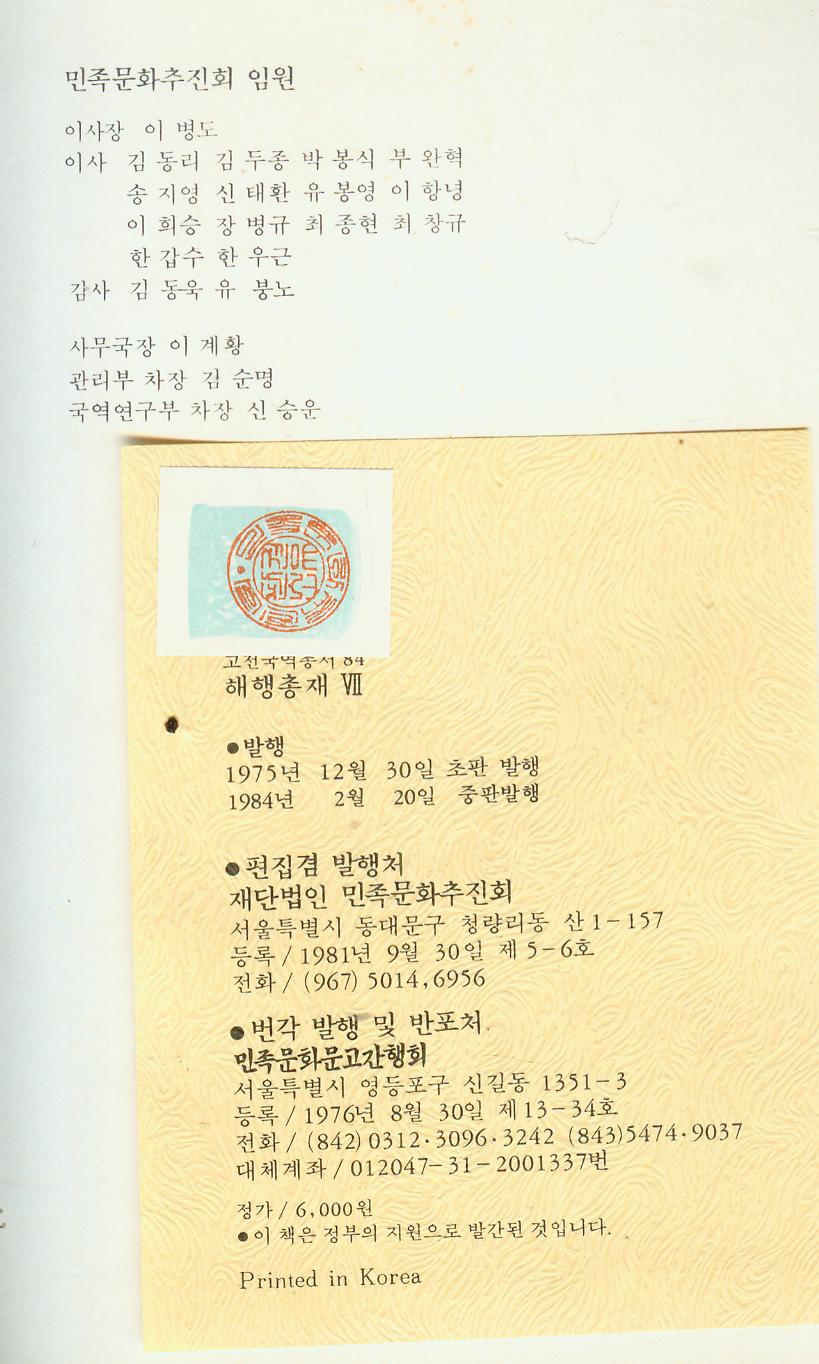 민족문화추진회 임원
이사장 이 병도
이사 김 동리 김 두종 박 봉식 부 완혁
송 지영 신 태환 유 봉영 이 항녕
이 희승 장 병규 최 종현 최 창규
한 갑수 한 우근
감사 김 동욱 유 붕노
사무국장 이 계황
관리부 차장 김 순명
국역연구부 차장 신 승운
고전국역총서 84
해행총재 Ⅶ
●발행
1975년 12월 30일 초판 발행
1984년 2월 20일 중판발행
●편집겸 발행처
재단법인 민족문화추진회
서울특별시 동대문구 청량리동 산 1-157
등록 / 1981년 9월 30일 제 5-6호
전화 / (967) 5014,6956
●번각 발행 및 반포처
민족문화문고간행회
서울특별시 영등포구 신길동 1351-3
등록 / 1976년 8월 30일 제 13-34호
전화 / (842) 0312·3096·3242 (843)5474·9037
대체계좌 / 012047-31-2001337번
정가 / 6,000원
●이 책은 정부의 지원으로 발간된 것입니다.
Printed in Korea